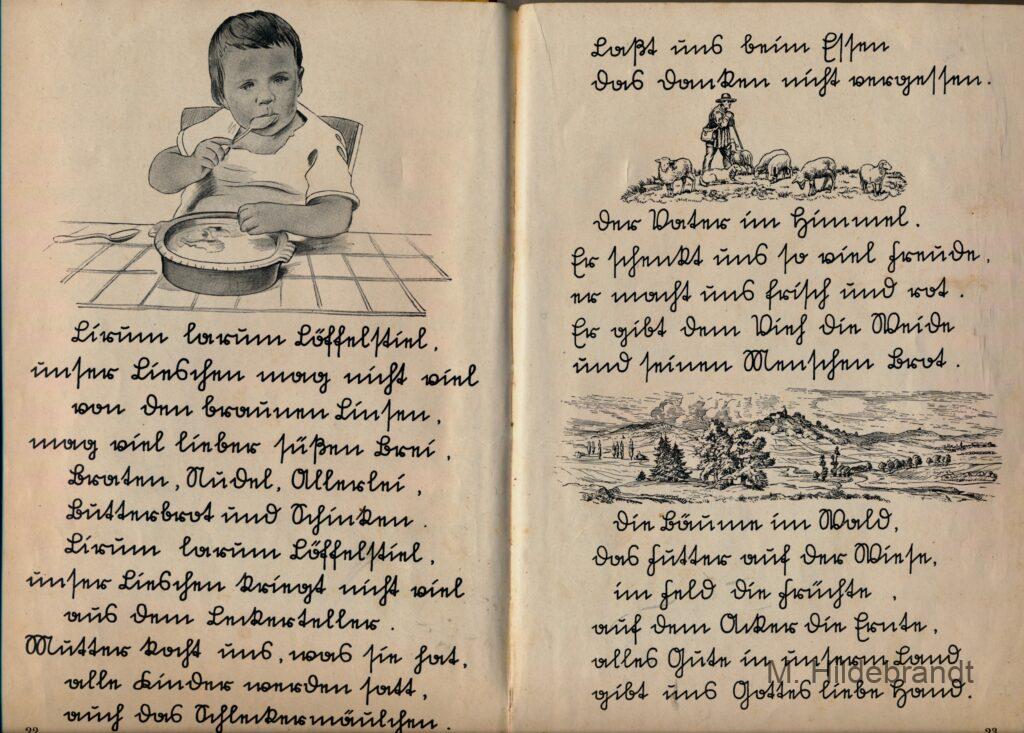 Lirum larum Löffelstiel,
unser Lieschen mag nicht viel
von den braunen Linsen,
mag viel lieber süßen Brei,
Braten, Nudel, Allerlei,
Butterbrot und Schinken.
Lirum larum Löffelstiel,
unser Lieschen kriegt nicht viel
aus dem Leckerteller.
Mutter kocht uns, was sie hat,
alle Kinder werden satt,
auch das Schleckermäulchen.
22
Laßt uns beim Essen
das Danken nicht vergessen.
Der Vater im Himmel.
Er schenkt uns so viel Freude,
er macht uns frisch und rot.
Er gibt dem Vieh die Weide
und seinen Menschen Brot.
Die Bäume im Wald,
das Futter auf der Wiese,
im Feld die Früchte,
auf dem Acker die Ernte,
alles Gute in unserm Land
gibt uns Gottes liebe Hand.
M. Hildebrandt
23